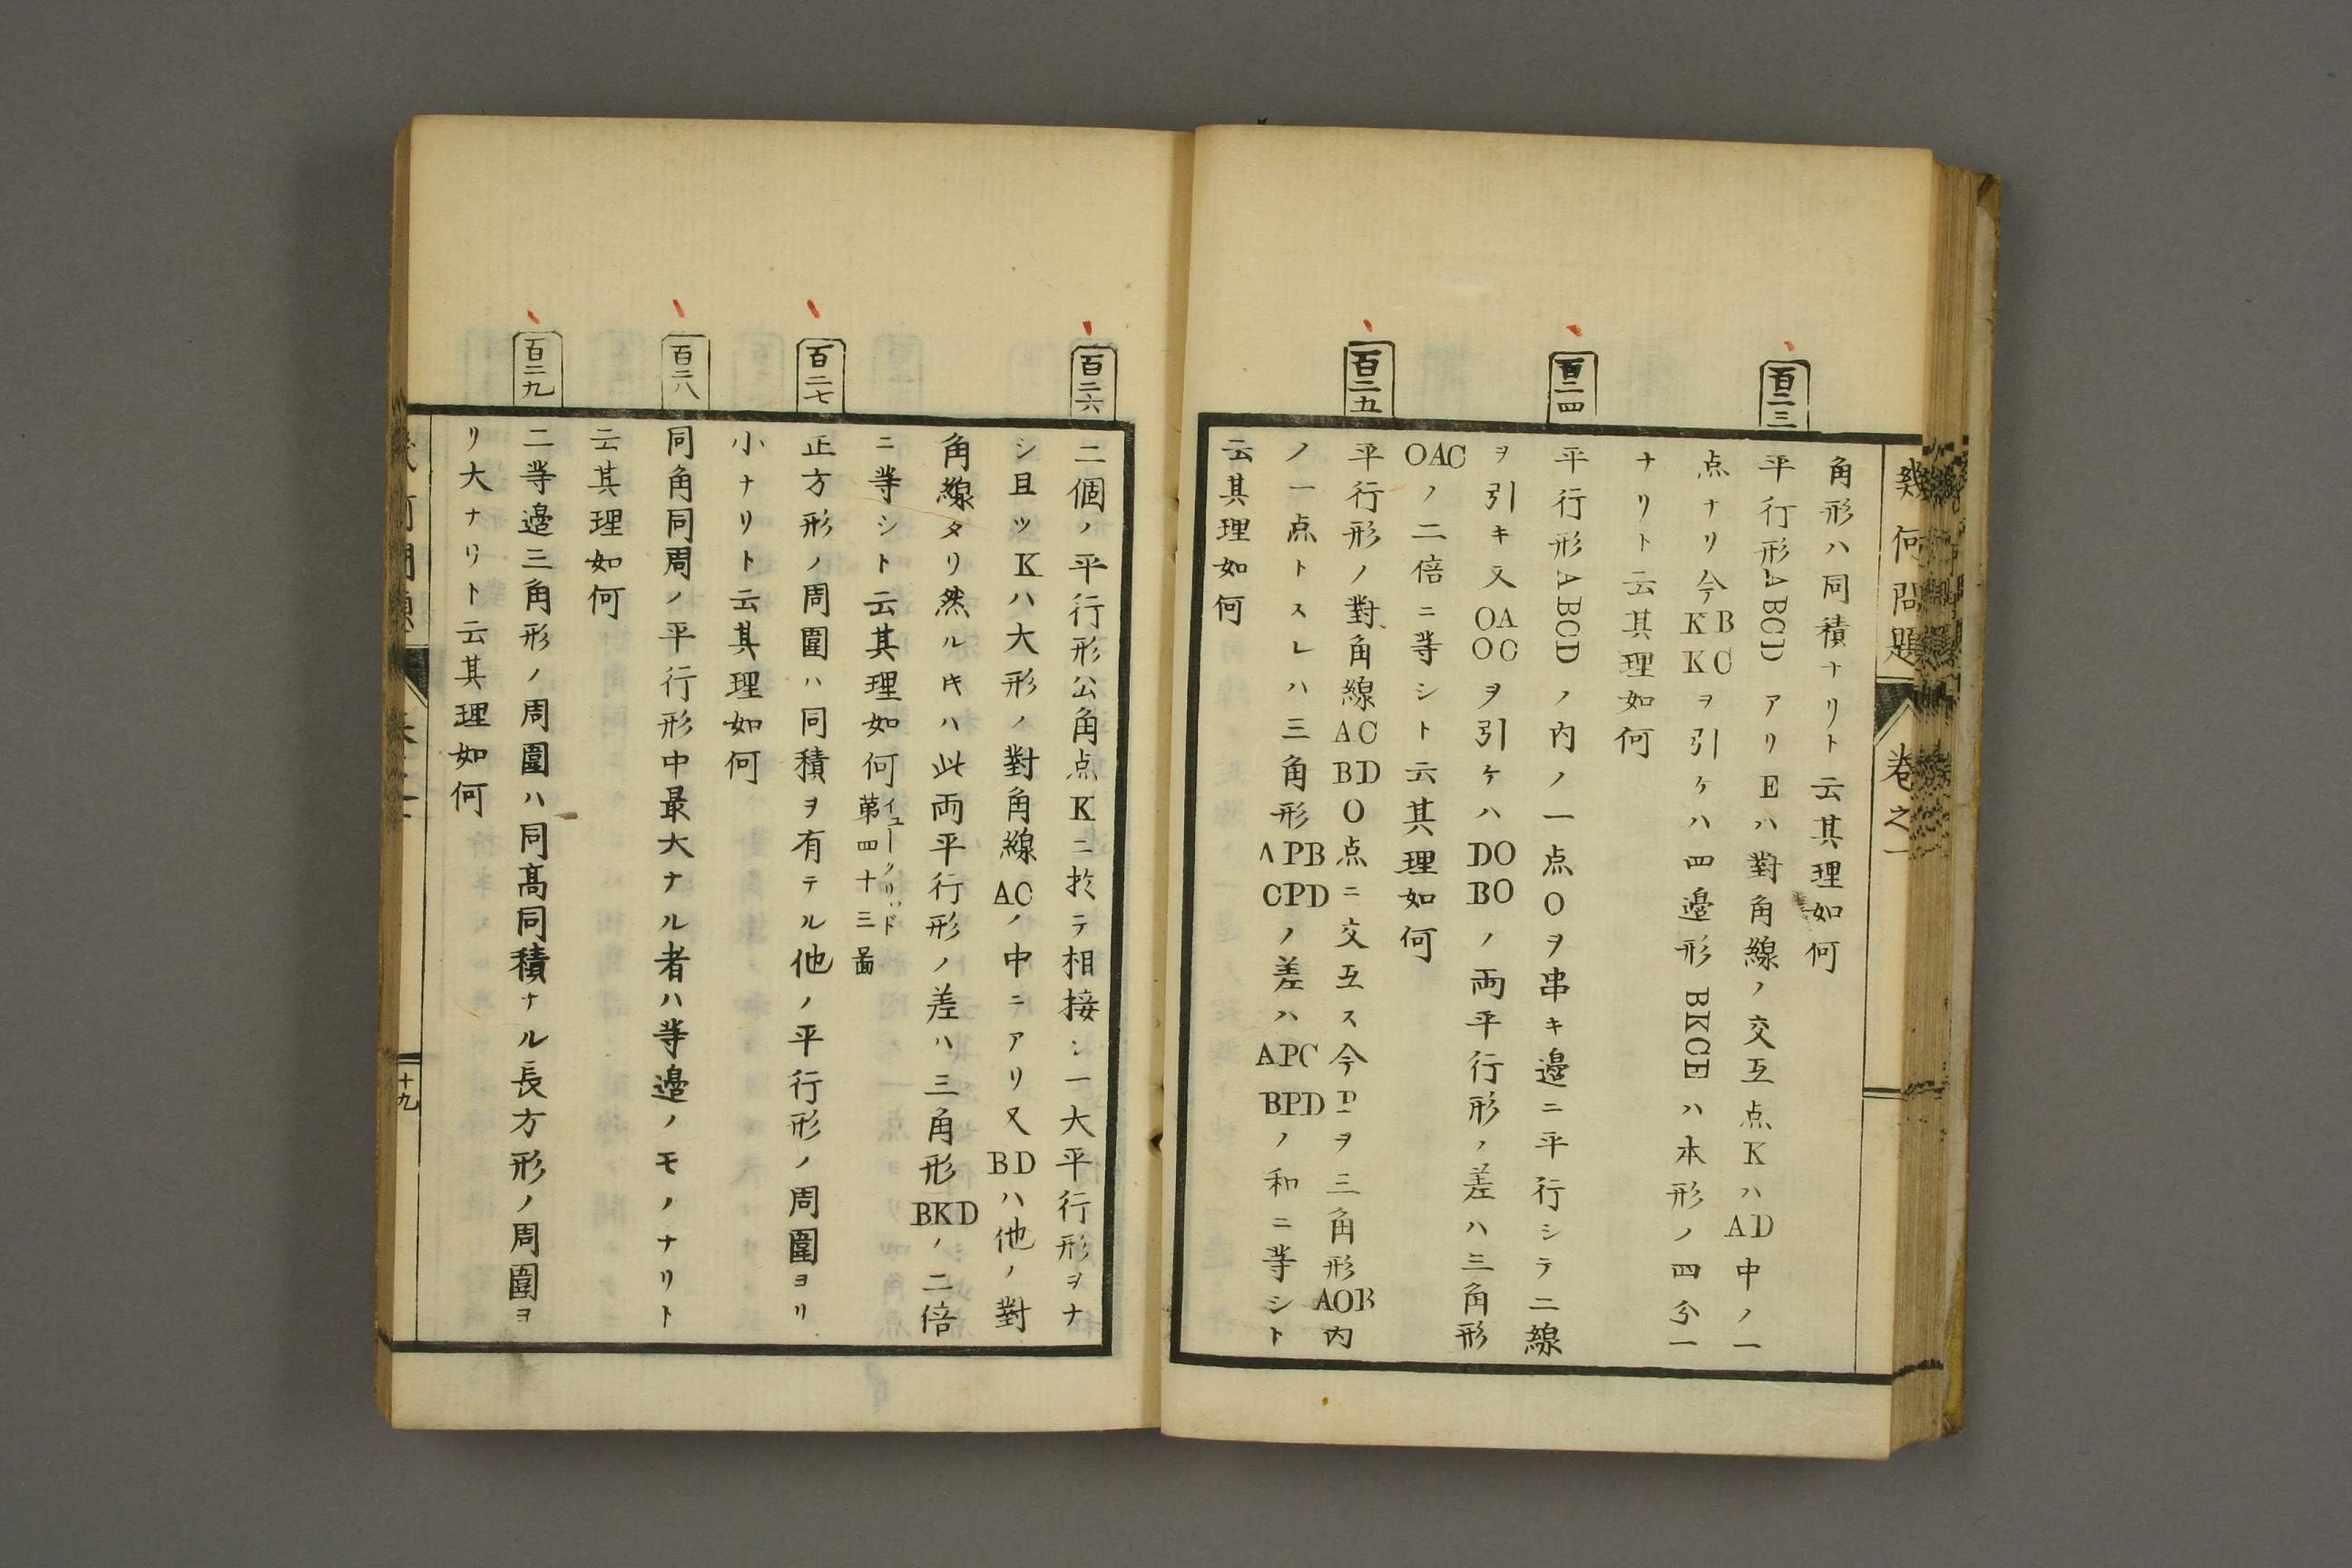 幾何問題
卷之一
角形ハ同積ナリト云其理如何
百二三
平行形ABCDアリEハ對角線ノ交互点KハAD中ノ一
点ナリ今KB KCヲ引ケハ四邊形BKCEハ本形ノ四分一
ナリト云其理如何
百二四
平行形ABCDノ内ノ一点Oヲ串キ邊ニ平行シテ二線
ヲ引キ又OA OCヲ引ケハDO BOノ両平行形ノ差ハ三角形
OACノ二倍ニ等シト云其理如何
百二五
平行形ノ對角線AC BD O点ニ交互ス今Pヲ三角形AOB内
ノ一点トスレハ三角形APB CPDノ差ハAPC BPDノ和ニ等シト
云其理如何
百二六
二個ノ平行形公角点Kニ於テ相接シ一大平行形ヲナ
シ且ツKハ大形ノ對角線ACノ中ニアリ又BDハ他ノ對
角線タリ然ル𪜈ハ此両平行形ノ差ハ三角形BKDノ二倍
ニ等シト云其理如何 イユークリッド 第四十三畵
百二七
正方形ノ周圍ハ同積ヲ有テル他ノ平行形ノ周圍ヨリ
小ナリト云其理如何
百二八
同角同周ノ平行形中最大ナル者ハ等邊ノモノナリト
云其理如何
百二九
二等邊三角形ノ周圍ハ同髙同積ナル長方形ノ周圍ヨ
リ大ナリト云其理如何
十九